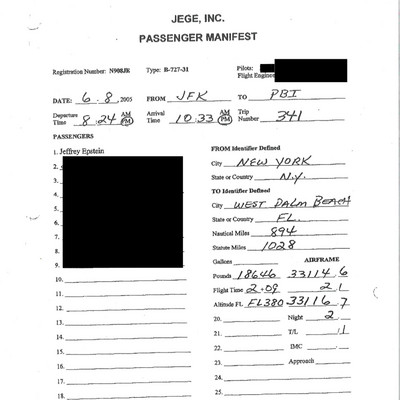 JEGE, INC.
PASSENGER MANIFEST
Registration Number: N908JE Type: B-727-31 Pilots:
Flight Engineer
DATE: 6.8,2005 FROM JFK TO PBI
Departure Time 8.24 AM PM Arrival Time 10.33 AM PM Trip Number 341
PASSENGERS
1. Jeffrey Epstein
2.
3.
4.
5.
6.
7.
8.
9.
10.
11.
12.
13.
14.
15.
16.
17.
18.
FROM Identifier Defined
City NEW YORK
State or Country N.Y.
TO Identifier Defined
City WEST PALM BEACH
State or Country FL.
Nautical Miles 894
Statute Miles 1028
Gallons AIRFRAME
Pounds 18646 33114 6
Flight Time 2.09 2 1
Altitude FL FL380 33116 7
20. Night 2
21. T/L 1
22. IMC
23. Approach
24.
25.